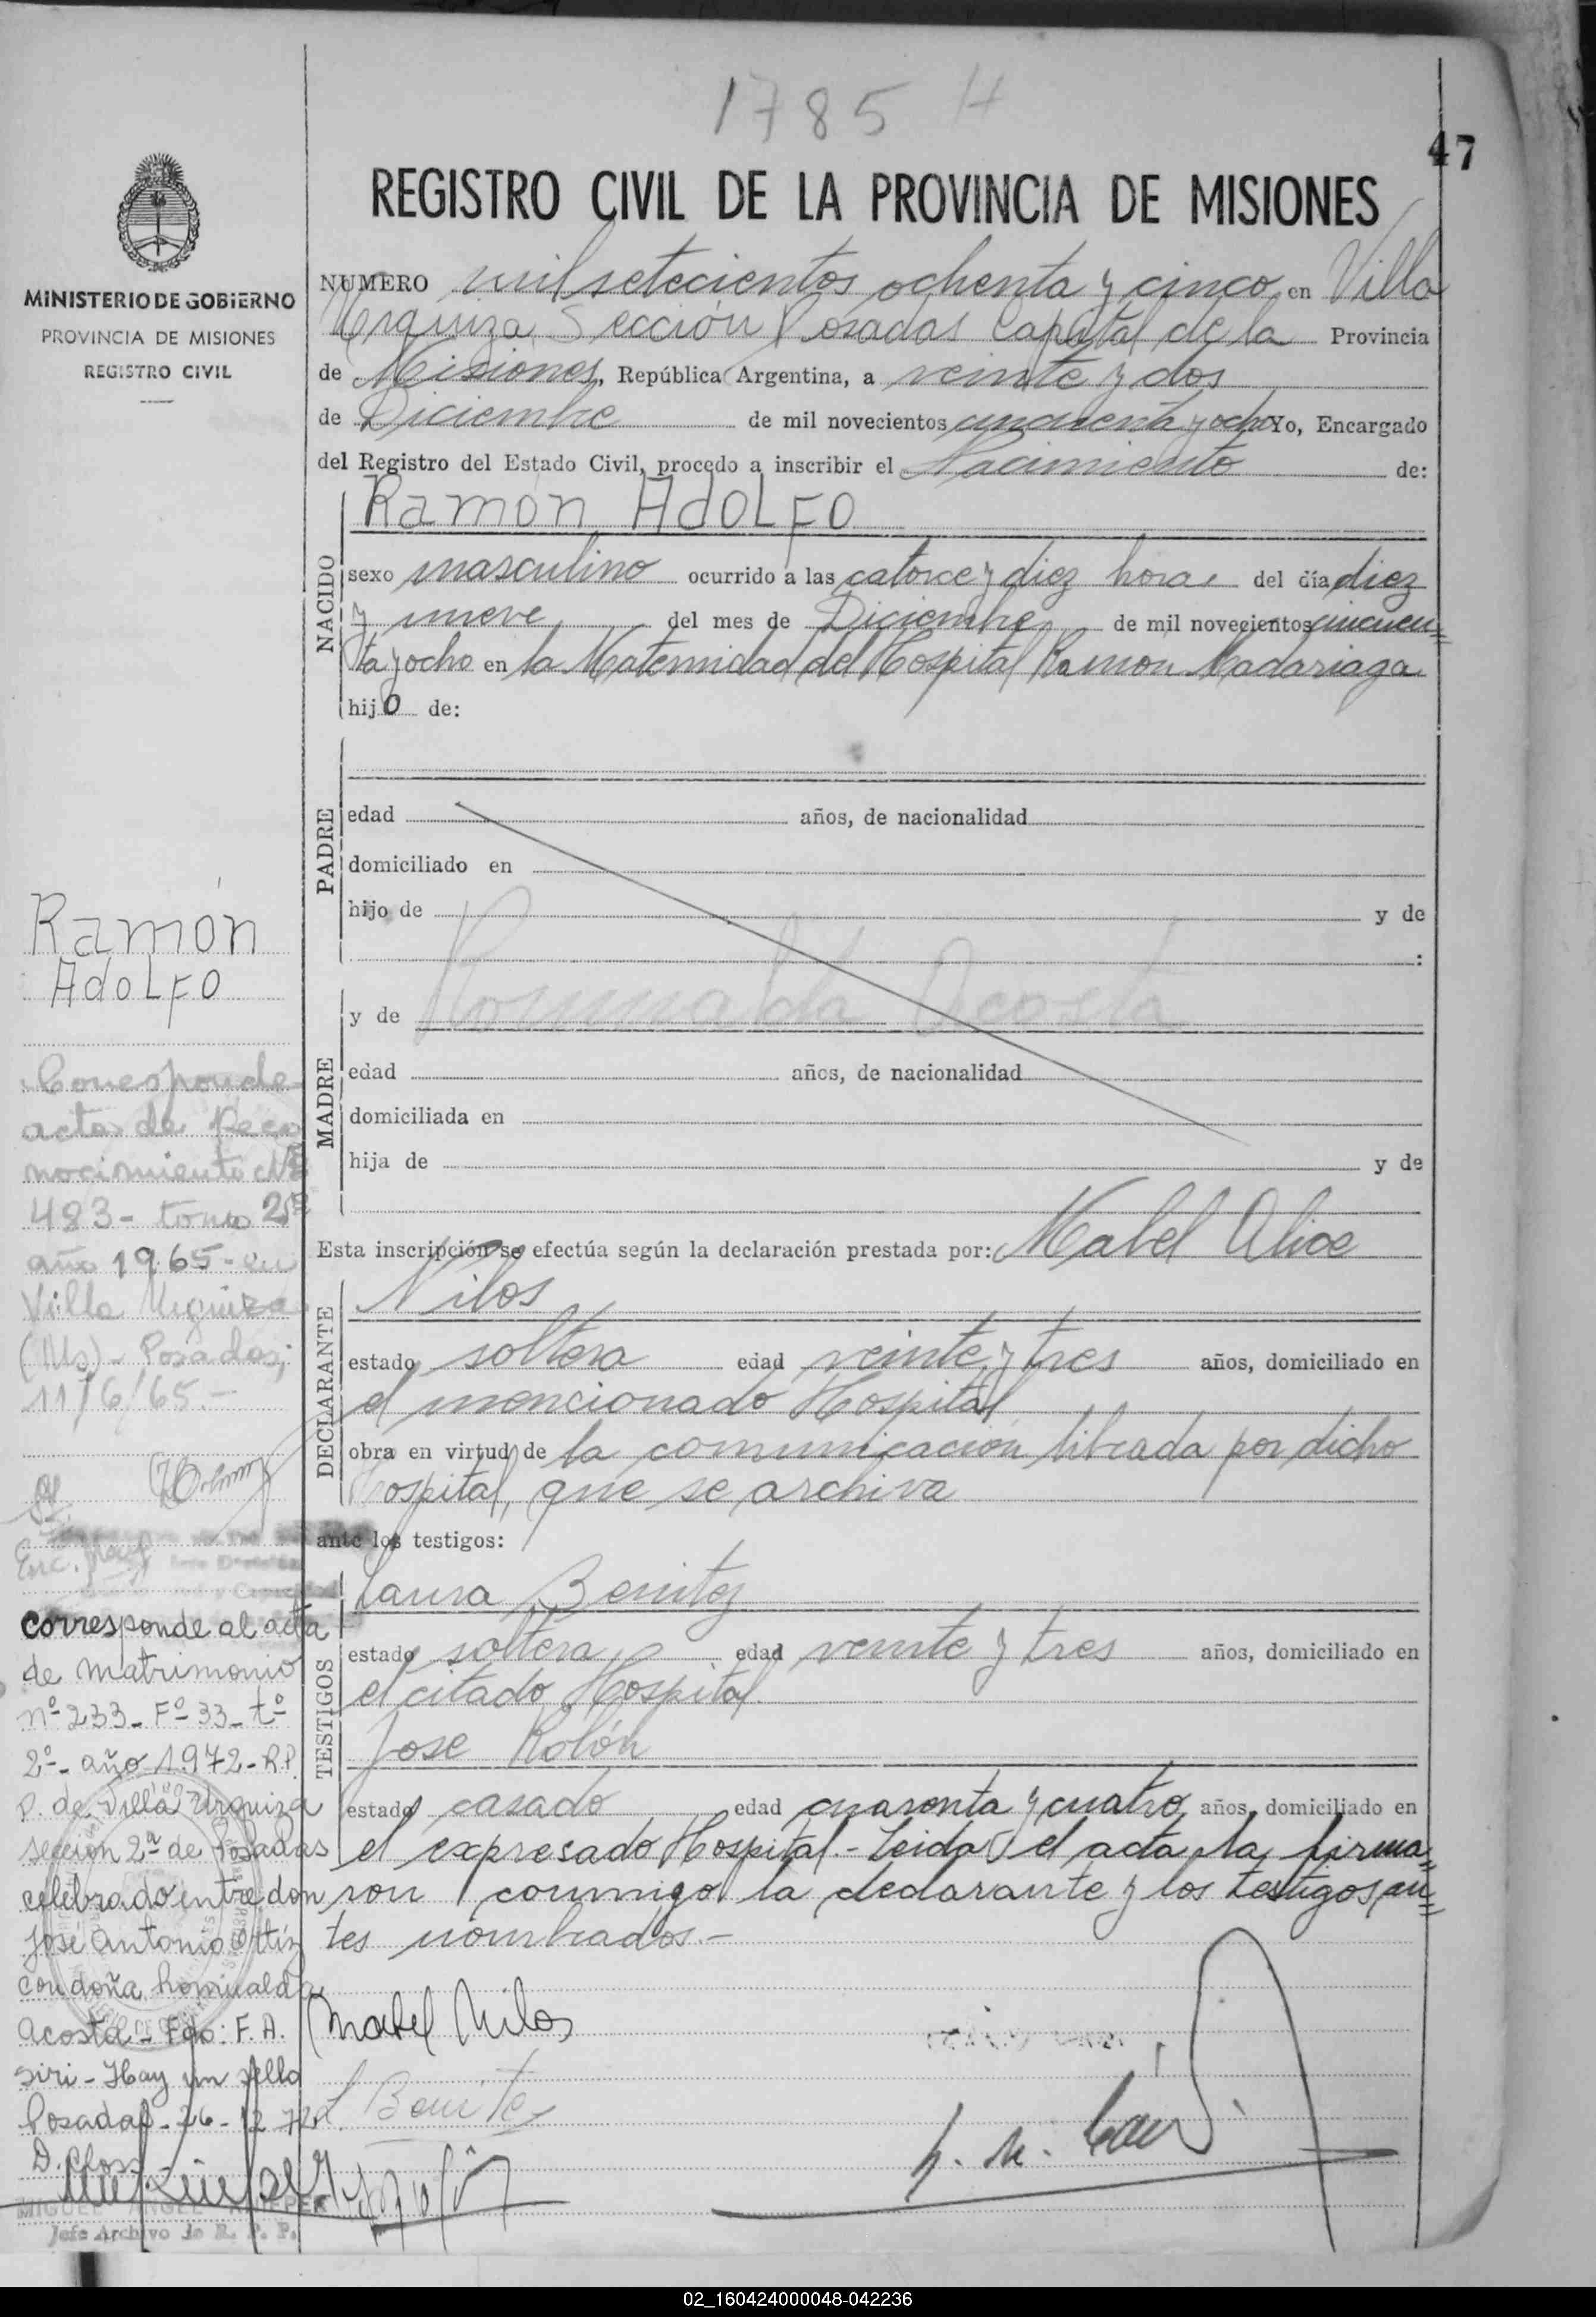 1785 H
47
REGISTRO CIVIL DE LA PROVINCIA DE MISIONES
MINISTERIO DE GOBIERNO
PROVINCIA DE MISIONES
REGISTRO CIVIL
NUMERO mil setecientos ochenta y cinco en Villa
Urquiza Sección Posadas Capital de la Provincia
de Misiones, República Argentina, a veinte y dos
de Diciembre de mil novecientos cincuenta y ocho Yo, Encargado
del Registro del Estado Civil, procedo a inscribir el Nacimiento de:
NACIDO
Ramón AdoLFO
sexo masculino ocurrido a las catorce y diez horas del día diez
y nueve del mes de Diciembre de mil novecientos cincuen=
ta y ocho en la Maternidad del Hospital Ramon Madariaga
hijo de:
PADRE
edad años, de nacionalidad
domiciliado en
hijo de y de
:
MADRE
y de Romualda Acosta
edad años, de nacionalidad
domiciliada en
hija de y de
Esta inscripción se efectúa según la declaración prestada por: Mabel Alice
DECLARANTE
Nilos
estado soltera edad veinte y tres años, domiciliado en
el mencionado Hospital
obra en virtud de la comunicación librada por dicho
Hospital, que se archiva
ante los testigos:
TESTIGOS
Laura Benitez
estado soltera edad veinte y tres años, domiciliado en
el citado Hospital.
Jose Rolón
estado casado edad cuarenta y cuatro años, domiciliado en
el expresado Hospital.- Leida el acta, la firma=
ron conmigo la declarante y los testigos an=
tes nombrados.-
Mabel Nilos
L Benitez
Ramón
AdoLFO
Corresponde
acta de Reco
nocimiento Nº
483- tomo 2º
año 1965- en
Villa Urquiza
(Ms)- Posadas;
11/6/65.-
Enc.
Corresponde al acta
de matrimonio
nº 233- Fº 33- tº
2º- año 1972- R.P.
P. de Villa Urquiza
sección 2ª de Posadas
celebrado entre don
José Antonio Ortíz
con doña Romualda
Acosta- Fdo: F. A.
Siri- Hay un sello
Posadas- 26-12-72
D. Closs
MIGUEL ANGEL
Jefe Archivo de R. P. P.
02_160424000048-042236